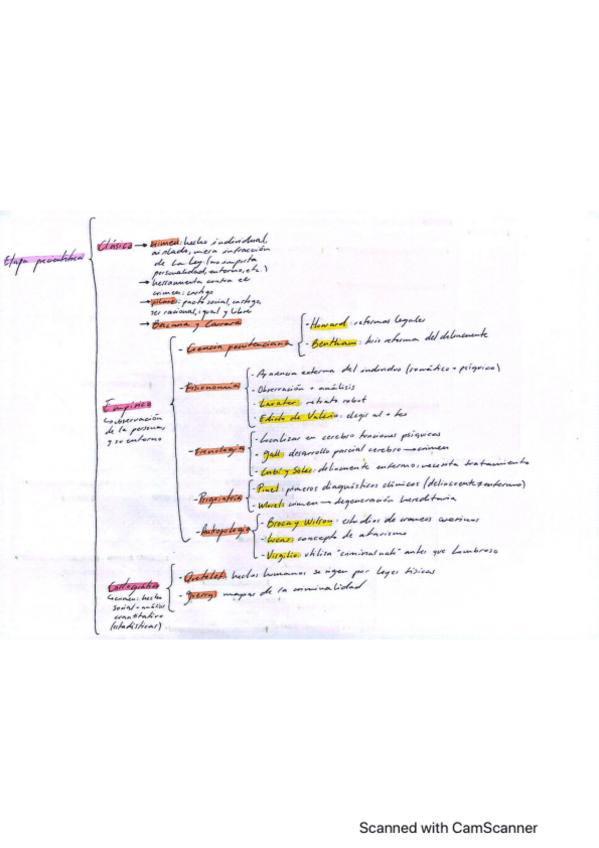 Etapa precientífica
Clásica → crimen: hecho individual,
aislado, mera infracción
de la Ley. (no importa
personalidad, entorno, etc.)
→ herramienta contra el
crimen: castigo
→ pilares: pacto social, castigo,
ser racional, igual y libre
→ Beccaria y Carrara
Empírica
↳ observación
de la persona
y su entorno
- Ciencia penitenciaria
- Howard: reformas legales
- Bentham: bus reforma del delincuente
- Fisionomía
- Apariencia externa del individuo (somático + psíquico)
- Observación + análisis
- Lavater: retrato robot
- Edicto de Valerio: elegir al + feo
- Frenología
- Localizar en cerebro funciones psíquicas
- Gall: desarrollo parcial cerebro → crimen
- Cubí y Soler: delincuente enfermo: necesita tratamiento
- Psiquiatría
- Pinel: primeros diagnósticos clínicos (delincuente ≠ enfermo)
- Morel: crimen → degeneración hereditaria
- Antropología
- Broca y Wilson: estudios de craneos asesinos
- Lucas: concepto de atavismo
- Virgilio: utiliza "criminal nato" antes que Lombroso
Cartográfica
↳ crimen: hecho
social → análisis
cuantitativo
(estadísticas)
- Quetelet: hechos humanos se rigen por leyes físicas
- Guerry: mapas de la criminalidad
Scanned with CamScanner